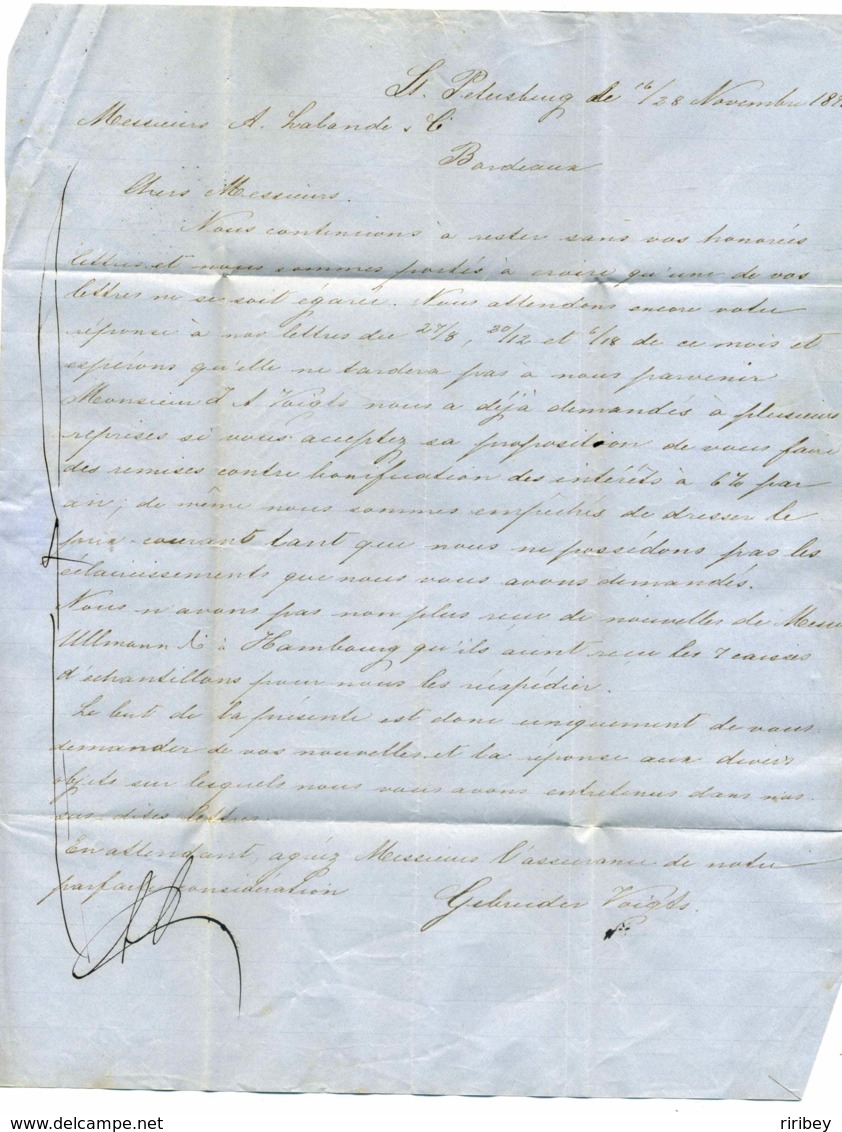 St. Petersburg le 16/28 Novembre
Messieurs A. Lalande & C
Bordeaux
Chers Messieurs.
Nous continuons à rester sans vos honorées
lettres et nous sommes portés à croire qu'une de vos
lettres ne se soit égarée. Nous attendons encore votre
réponse à nos lettres du 27/8, 30/12 et 6/18 de ce mois et
espérons qu'elle ne tardera pas à nous parvenir
Monsieur J A Voigts nous a déjà demandés à plusieurs
reprises si vous acceptez sa proposition de vous faire
des remises contre bonification des intérêts à 6% par
an; de même nous sommes empêchés de dresser le
prix-courant tant que nous ne possédons pas les
éclaircissements que nous vous avons demandés.
Nous n'avons pas non plus reçu de nouvelles de
Ullmann & C à Hambourg qu'ils aient reçu les 7 caisses
d'échantillons pour nous les réexpédier.
Le but de la présente est donc uniquement de vous
demander de vos nouvelles et la réponse aux divers
objets sur lesquels nous vous avons entretenus dans nos
sus-dites lettres.
En attendant, agréez Messieurs l'assurance de notre
parfaite considération
Gebrueder Voigts.
riribey
delcampe.net